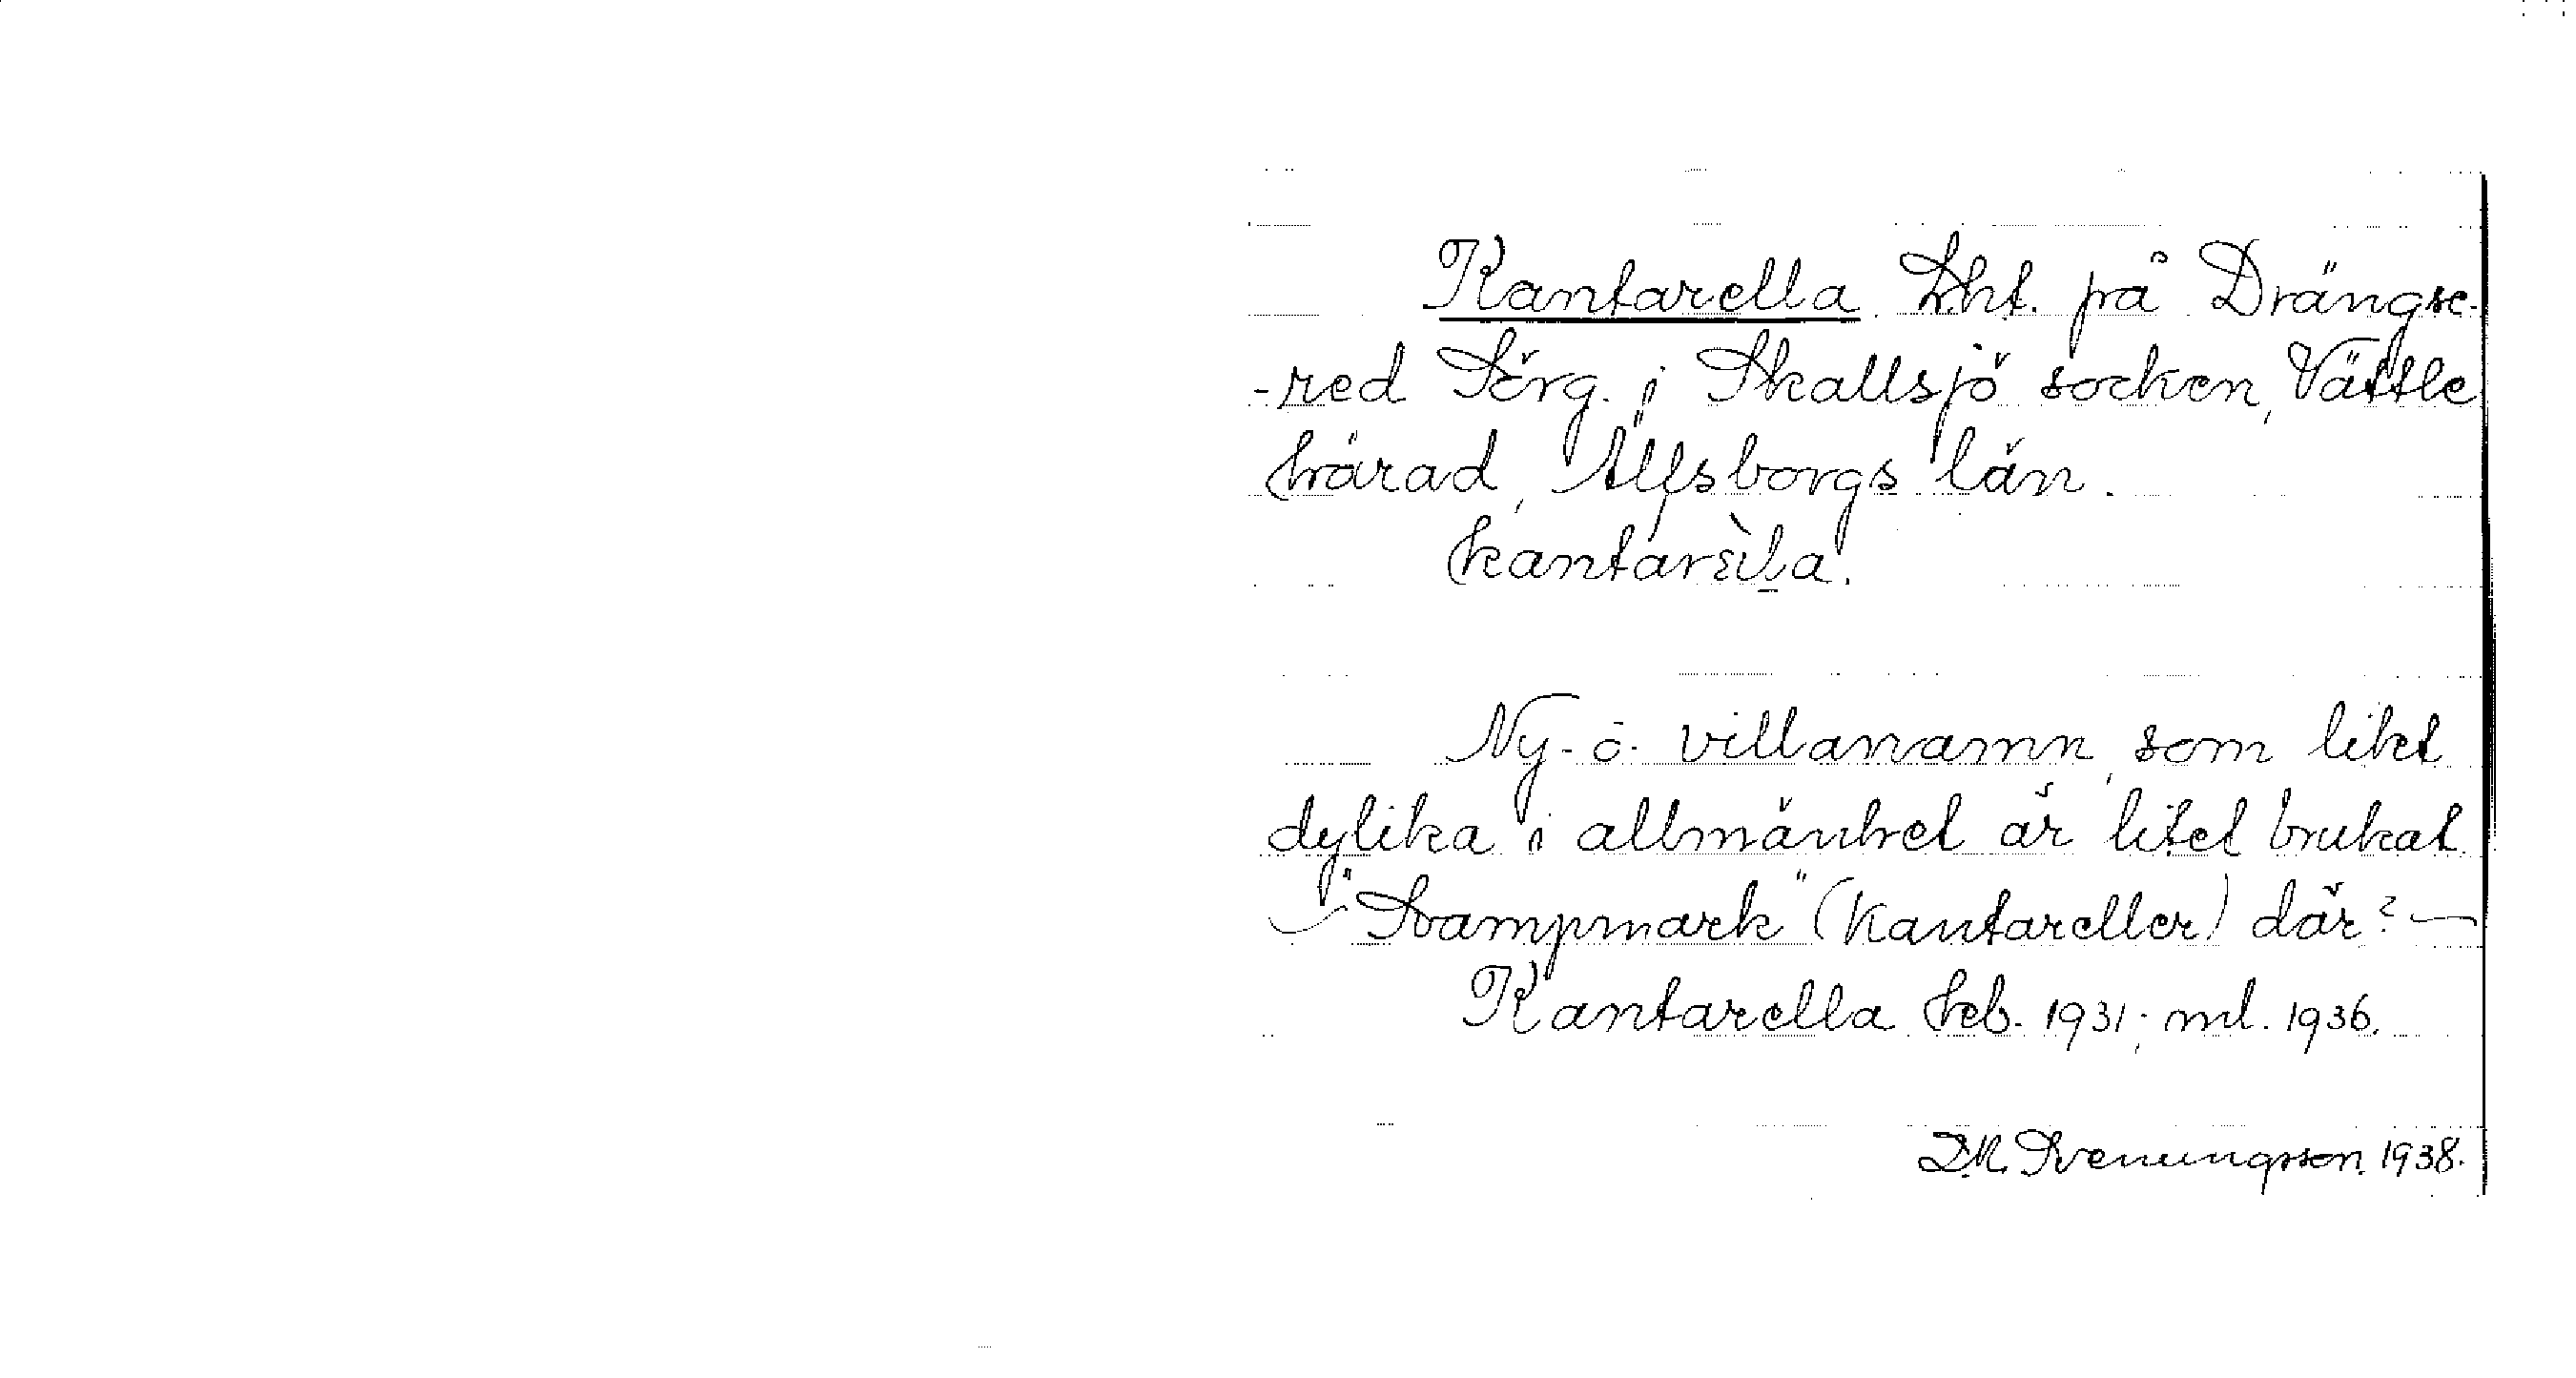 Kantarella Lht. på Drängse-
-red Sörg. i Skallsjö socken, Vättle
härad, Älfsborgs län.
kantarɛ̀l̠a.
Ny- o. villanamn, som likt
dylika i allmänhet är litet brukat.
"Svampmark" (Kantareller) där?
Kantarella Jeb. 1931; ml. 1936.
D.M. Svenungsson. 1938.